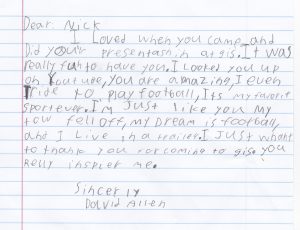 Dear: Nick
I Loved when you camp and
Did your presentashin at gis. It was
really fun to have you. I Looked you up
on Youtube, You are amazing, I even
Tride to play football, Its my favorit
sport ever. I'm Just like you my
tow fell off, my dream is football,
and I Live in a trailer. I Just whant
to thank you for coming to gis. you
Relly inspier me.
Sincerly
David Allen